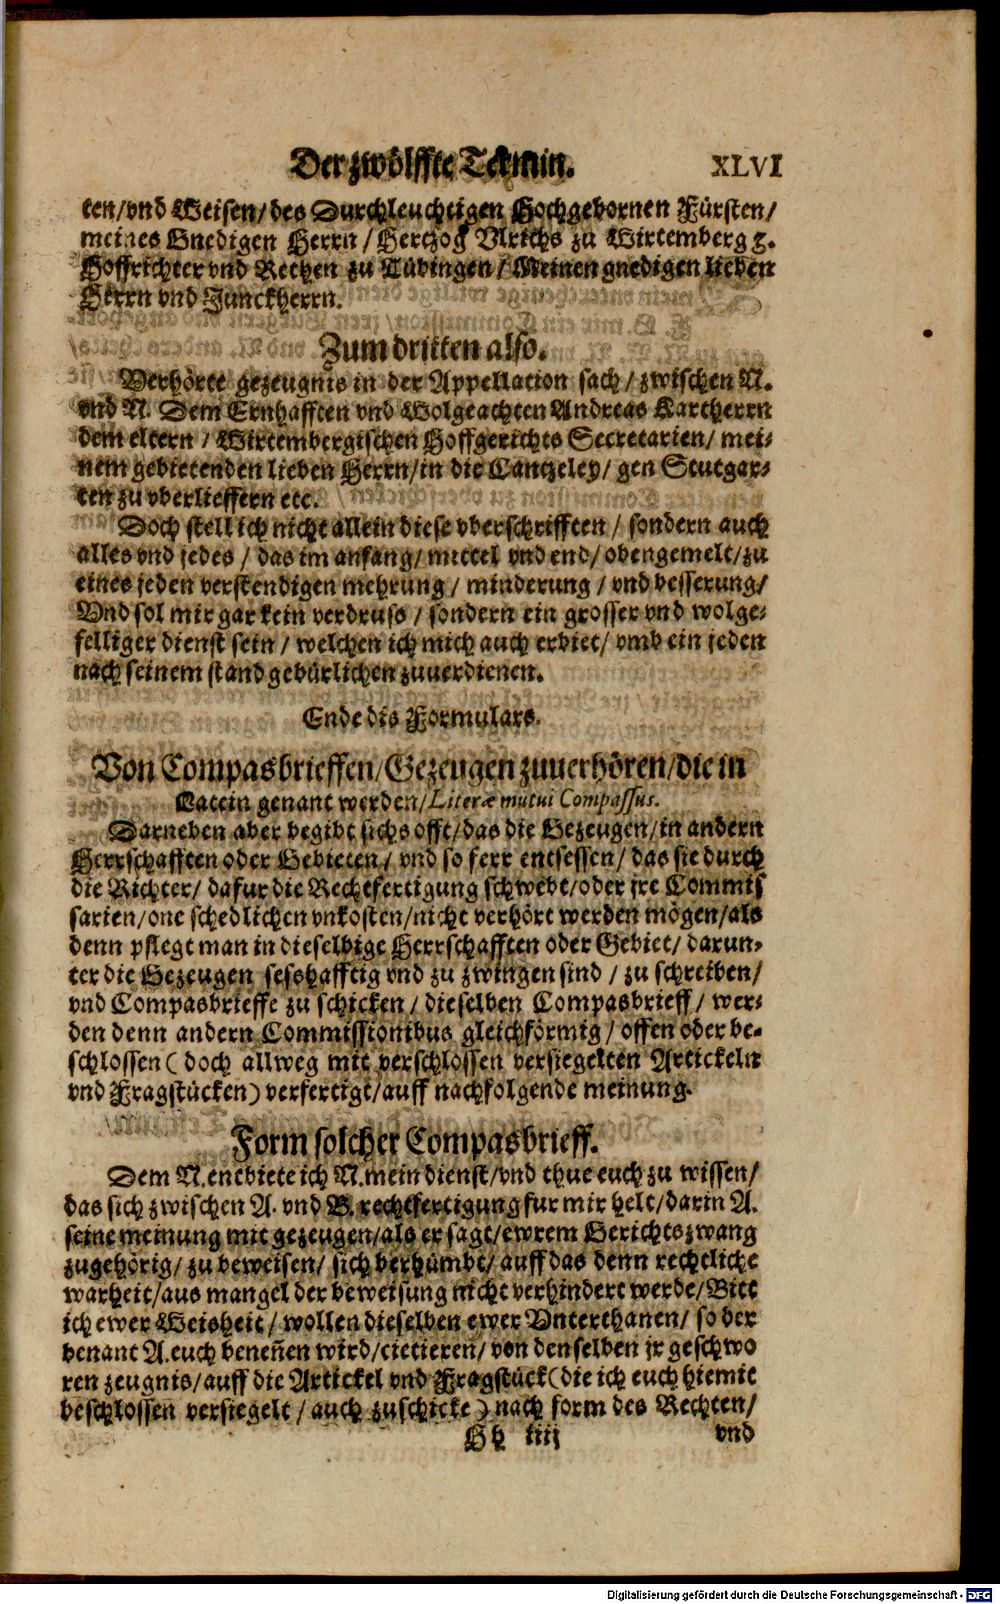 Der zwölffte Termin. XLVI
ten/vnd Weisen/des Durchleuchtigen Hochgebornen Fürsten/
meines Gnedigen Herrn / Hertzog Vlrichs zu Wirtemberg ꝛc.
Hoffrichter vnd Rethen zu Tübingen / Meinen gnedigen lieben
Herrn vnd Junckherrn.
Zum dritten also.
Verhörte gezeugnis in der Appellation sach / zwischen N.
vnd N. Dem Ernhafften vnd Wolgeachten Andreas Kartherrn
dem eltern / Wirtembergischen Hoffgerichts Secretarien/ mei-
nem gebietenden lieben Herrn/in die Cantzeley/ gen Stutgar-
ten zu vberlieffern etc.
Doch stell ich nicht allein diese vberschrifften / sondern auch
alles vnd jedes / das im anfang/ mittel vnd end/ obengemelt/zu
eines jeden verstendigen mehrung / minderung / vnd besserung/
Vnd sol mir gar kein verdruss / sondern ein grosser vnd wolge-
felliger dienst sein / welchen ich mich auch erbiet/ vmb ein jeden
nach seinem stand gebürlichen zuuerdienen.
Ende dis Formulars.
Von Compasbrieffen/Gezeugen zuuerhören/die in
Latein genant werden/Literæ mutui Compassus.
Darneben aber begibt sichs offt/das die Gezeugen/in andern
Herrschafften oder Gebieten/ vnd so ferr entsessen/ das sie durch
die Richter/ dafur die Rechtfertigung schwebt/oder jre Commis
sarien/one schedlichen vnkosten/nicht verhört werden mögen/als
denn pflegt man in dieselbige Herrschafften oder Gebiet/ darun-
ter die Gezeugen sesshafftig vnd zu zwingen sind / zu schreiben/
vnd Compasbrieffe zu schicken / dieselben Compasbrieff / wer-
den denn andern Commissionibus gleichförmig / offen oder be-
schlossen ( doch allweg mit verschlossen versiegelten Artickeln
vnd Fragstücken) verfertigt/auff nachfolgende meinung.
Form solcher Compasbrieff.
Dem N. entbiete ich N. mein dienst/vnd thue euch zu wissen/
das sich zwischen A. vnd B. rechtfertigung fur mir helt/darin A.
seine meinung mit gezeugen/als er sagt/ewrem Gerichtszwang
zugehörig/ zu beweisen/ sich berhümbt/ auff das denn rechtliche
warheit/aus mangel der beweisung nicht verhindert werde/Bitt
ich ewer Weisheit/ wollen dieselben ewer Vnterthanen/ so der
benant A. euch beneñen wird/citieren/ von denselben jr geschwo
ren zeugnis/auff die Artickel vnd Fragstück(die ich euch hiemit
beschlossen versiegelt / auch zuschicke ) nach form des Rechten/
Hh iiij vnd
Digitalisierung gefördert durch die Deutsche Forschungsgemeinschaft - DFG